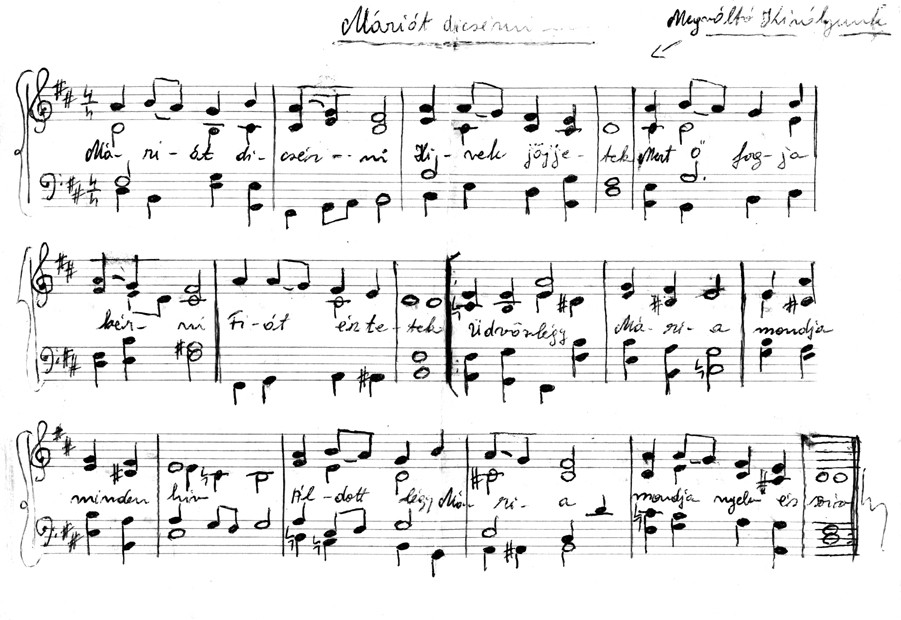 Máriát dicsérni
Megváltó Királyunk
4/4
Má- ri- át di- csér- ni Hí- vek jöjje- tek Mert Ő forg- ja
4/4
kér- ni Fi- át észte- tek Üdvözlégy Má- ri- a mondja
minden hív Ál- dott légy Má- ri- a mondja nyelv és szív